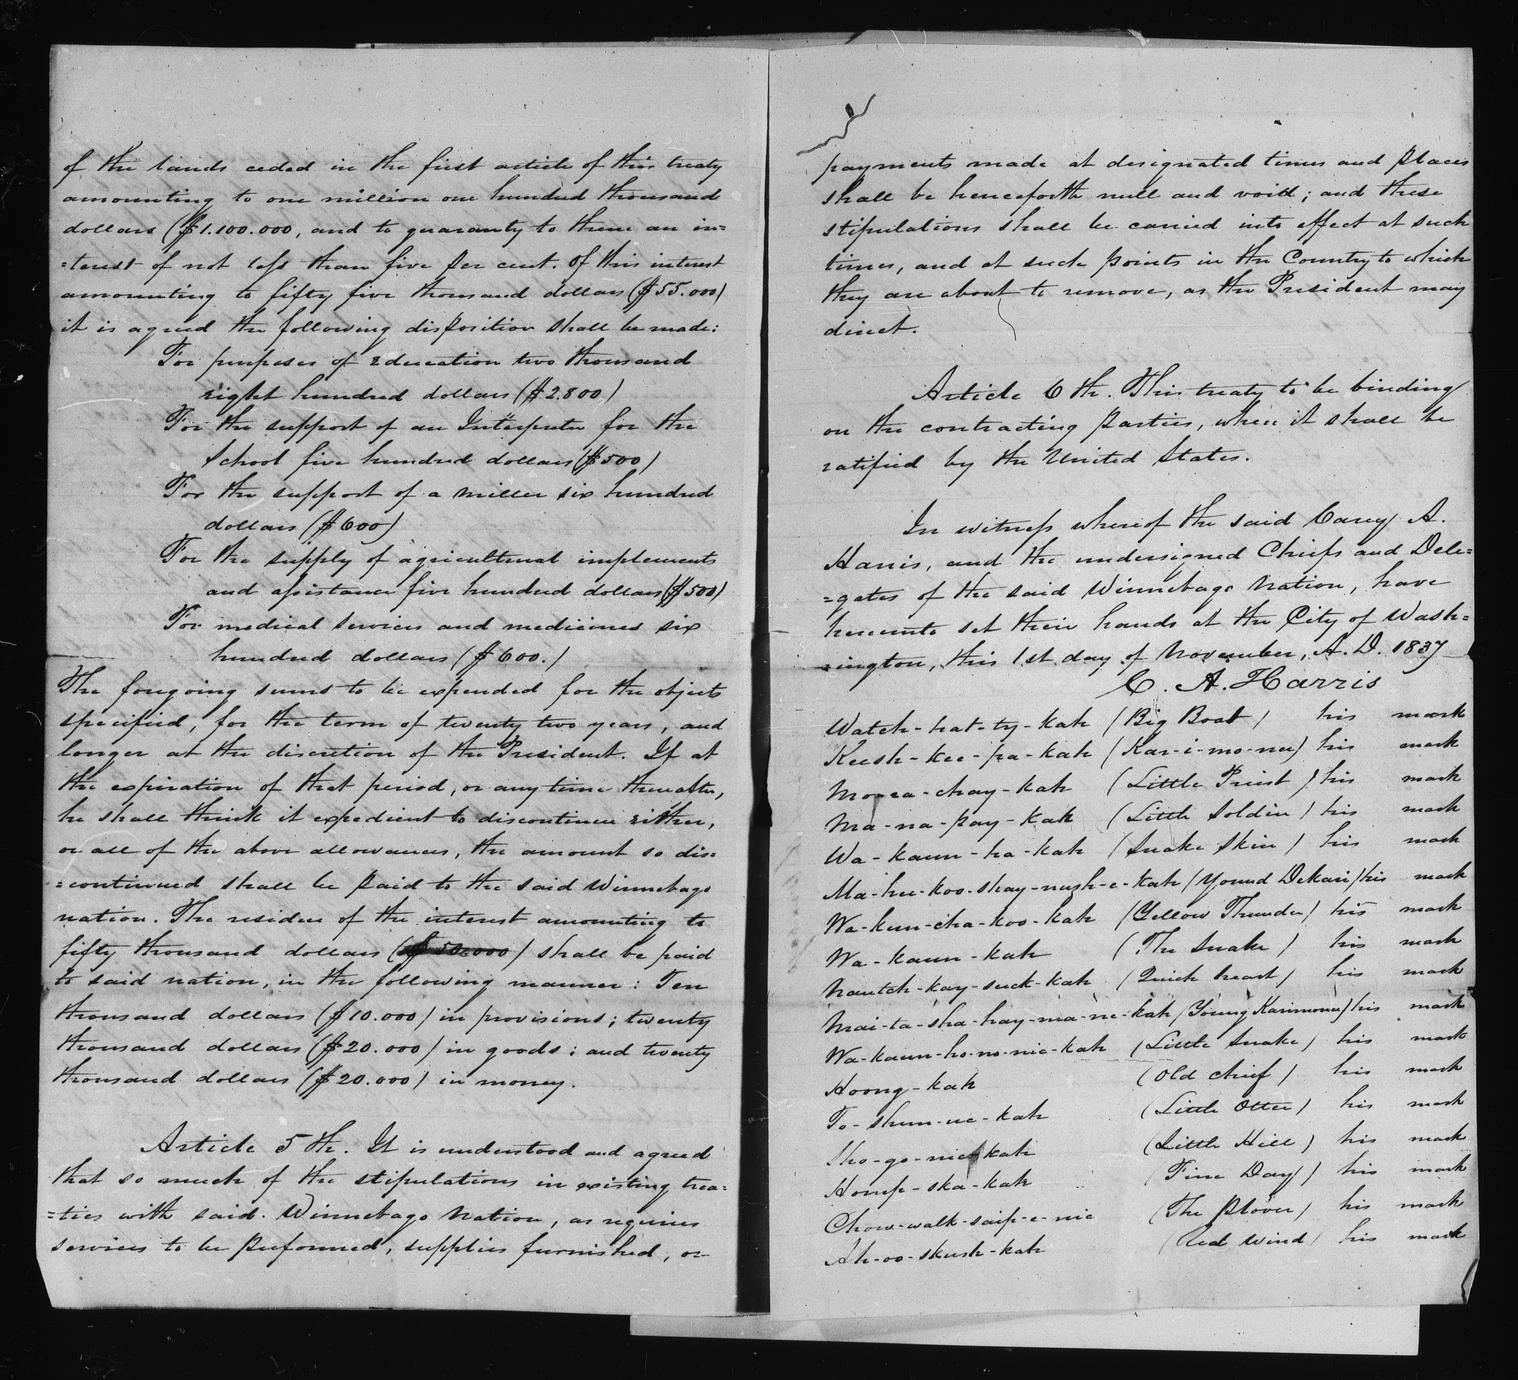 of the lands ceded in the first article of this treaty
amounting to one million one hundred thousand
dollars ($1.100.000, and to guaranty to them an in=
=terest of not less than five per cent. Of this interest
amounting to fifty five thousand dollars ($55.000)
it is agreed the following disposition shall be made:
For purposes of Education two thousand
eight hundred dollars ($2.800)
For the support of an Interpreter for the
School five hundred dollars ($500)
For the support of a miller six hundred
dollars ($600)
For the supply of agricultural implements
and assistance five hundred dollars ($500)
For medical services and medicines six
hundred dollars ($600.)
The foregoing sums to be expended for the objects
specified, for the term of twenty two years, and
longer at the discretion of the President. If at
the expiration of that period, or any time thereafter,
he shall think it expedient to discontinue either,
or all of the above allowances, the amount so dis=
=continued shall be paid to the said Winnebago
nation. The residue of the interest amounting to
fifty thousand dollars ($50.000) shall be paid
to said nation, in the following manner: Ten
thousand dollars ($10.000) in provisions; twenty
thousand dollars ($20.000) in goods; and twenty
thousand dollars ($20.000) in money.
Article 5th. It is understood and agreed
that so much of the stipulations in existing trea=
=ties with said Winnebago Nation, as requires
services to be performed, supplies furnished, or
payments made at designated times and places
shall be henceforth null and void; and these
stipulations shall be carried into effect at such
times, and at such points in the Country to which
they are about to remove, as the President may
direct.
Article 6th. This treaty to be binding
on the contracting parties, when it shall be
ratified by the United States.
In witness whereof the said Carey A.
Harris, and the undersigned Chiefs and Dele=
=gates of the said Winnebago Nation, have
hereunto set their hands at the City of Wash=
=ington, this 1st day of November, A.D. 1837
C. A. Harris
Watch-hat-ty-kah (Big Boat) his mark
Keesh-kee-pa-kah (Kar-i-mo-nee) his mark
Mo-ra-chay-kah (Little Priest) his mark
Ma-na-pay-kah (Little Soldier) his mark
Wa-kaun-ha-kah (Snake Skin) his mark
Ma-hee-koo-shay-nuzh-e-kah (Yound Dekari) his mark
Wa-kun-cha-koo-kah (Yellow Thunder) his mark
Wa-kaun-kah (The Snake) his mark
Nautch-kay-suck-kah (Quick heart) his mark
Mai-ta-sha-hay-ma-ne-kah (Young Karimonee) his mark
Wa-kaun-ho-no-nic-kah (Little Snake) his mark
Hoong-kah (Old Chief) his mark
To-shun-uc-kah (Little Otter) his mark
Sho-go-nic-kah (Little Hill) his mark
Homp-ska-kah (Fine Day) his mark
Chow-walk-saip-e-nic (The Plover) his mark
Ah-oo-skush-kah (Red Wind) his mark